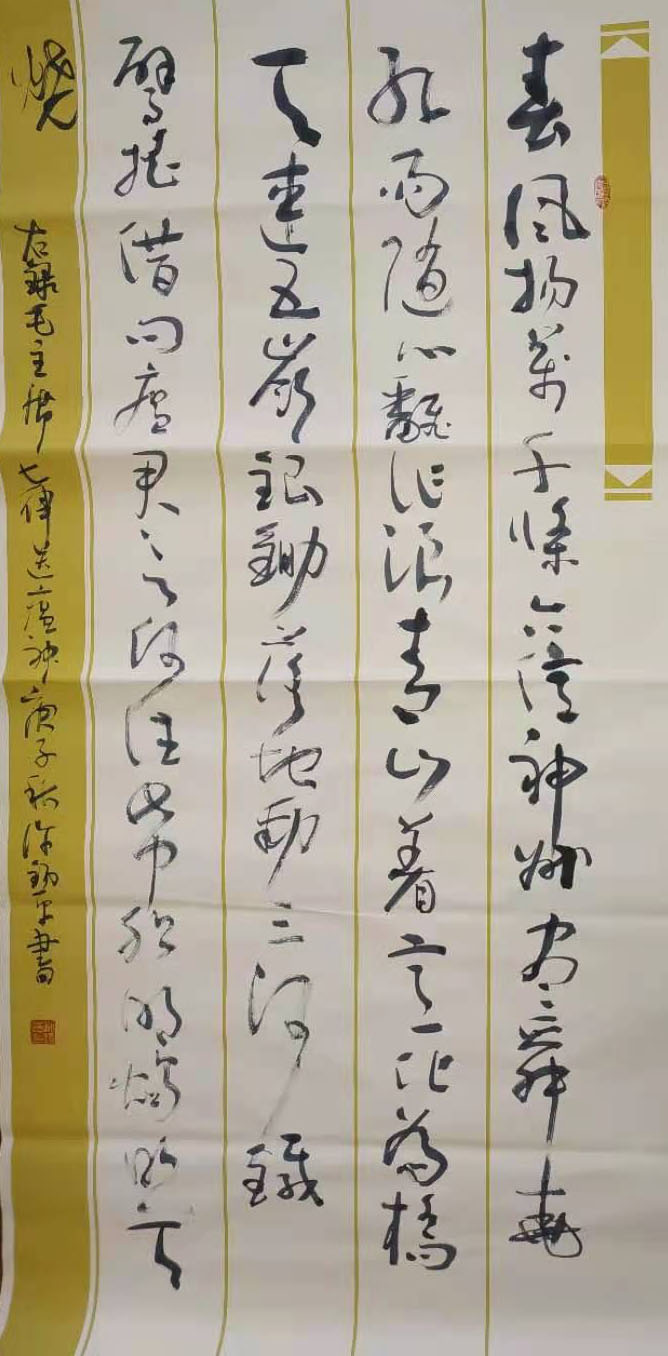 春風揚萬千條六億神州盡舜堯
紅雨隨心翻作浪青山着意化為橋
天連五嶺銀鋤落地動三河鐵
臂搖借問瘟君欲何往帋船明燭照天
燒
右錄毛主席七律送瘟神庚子秋許書